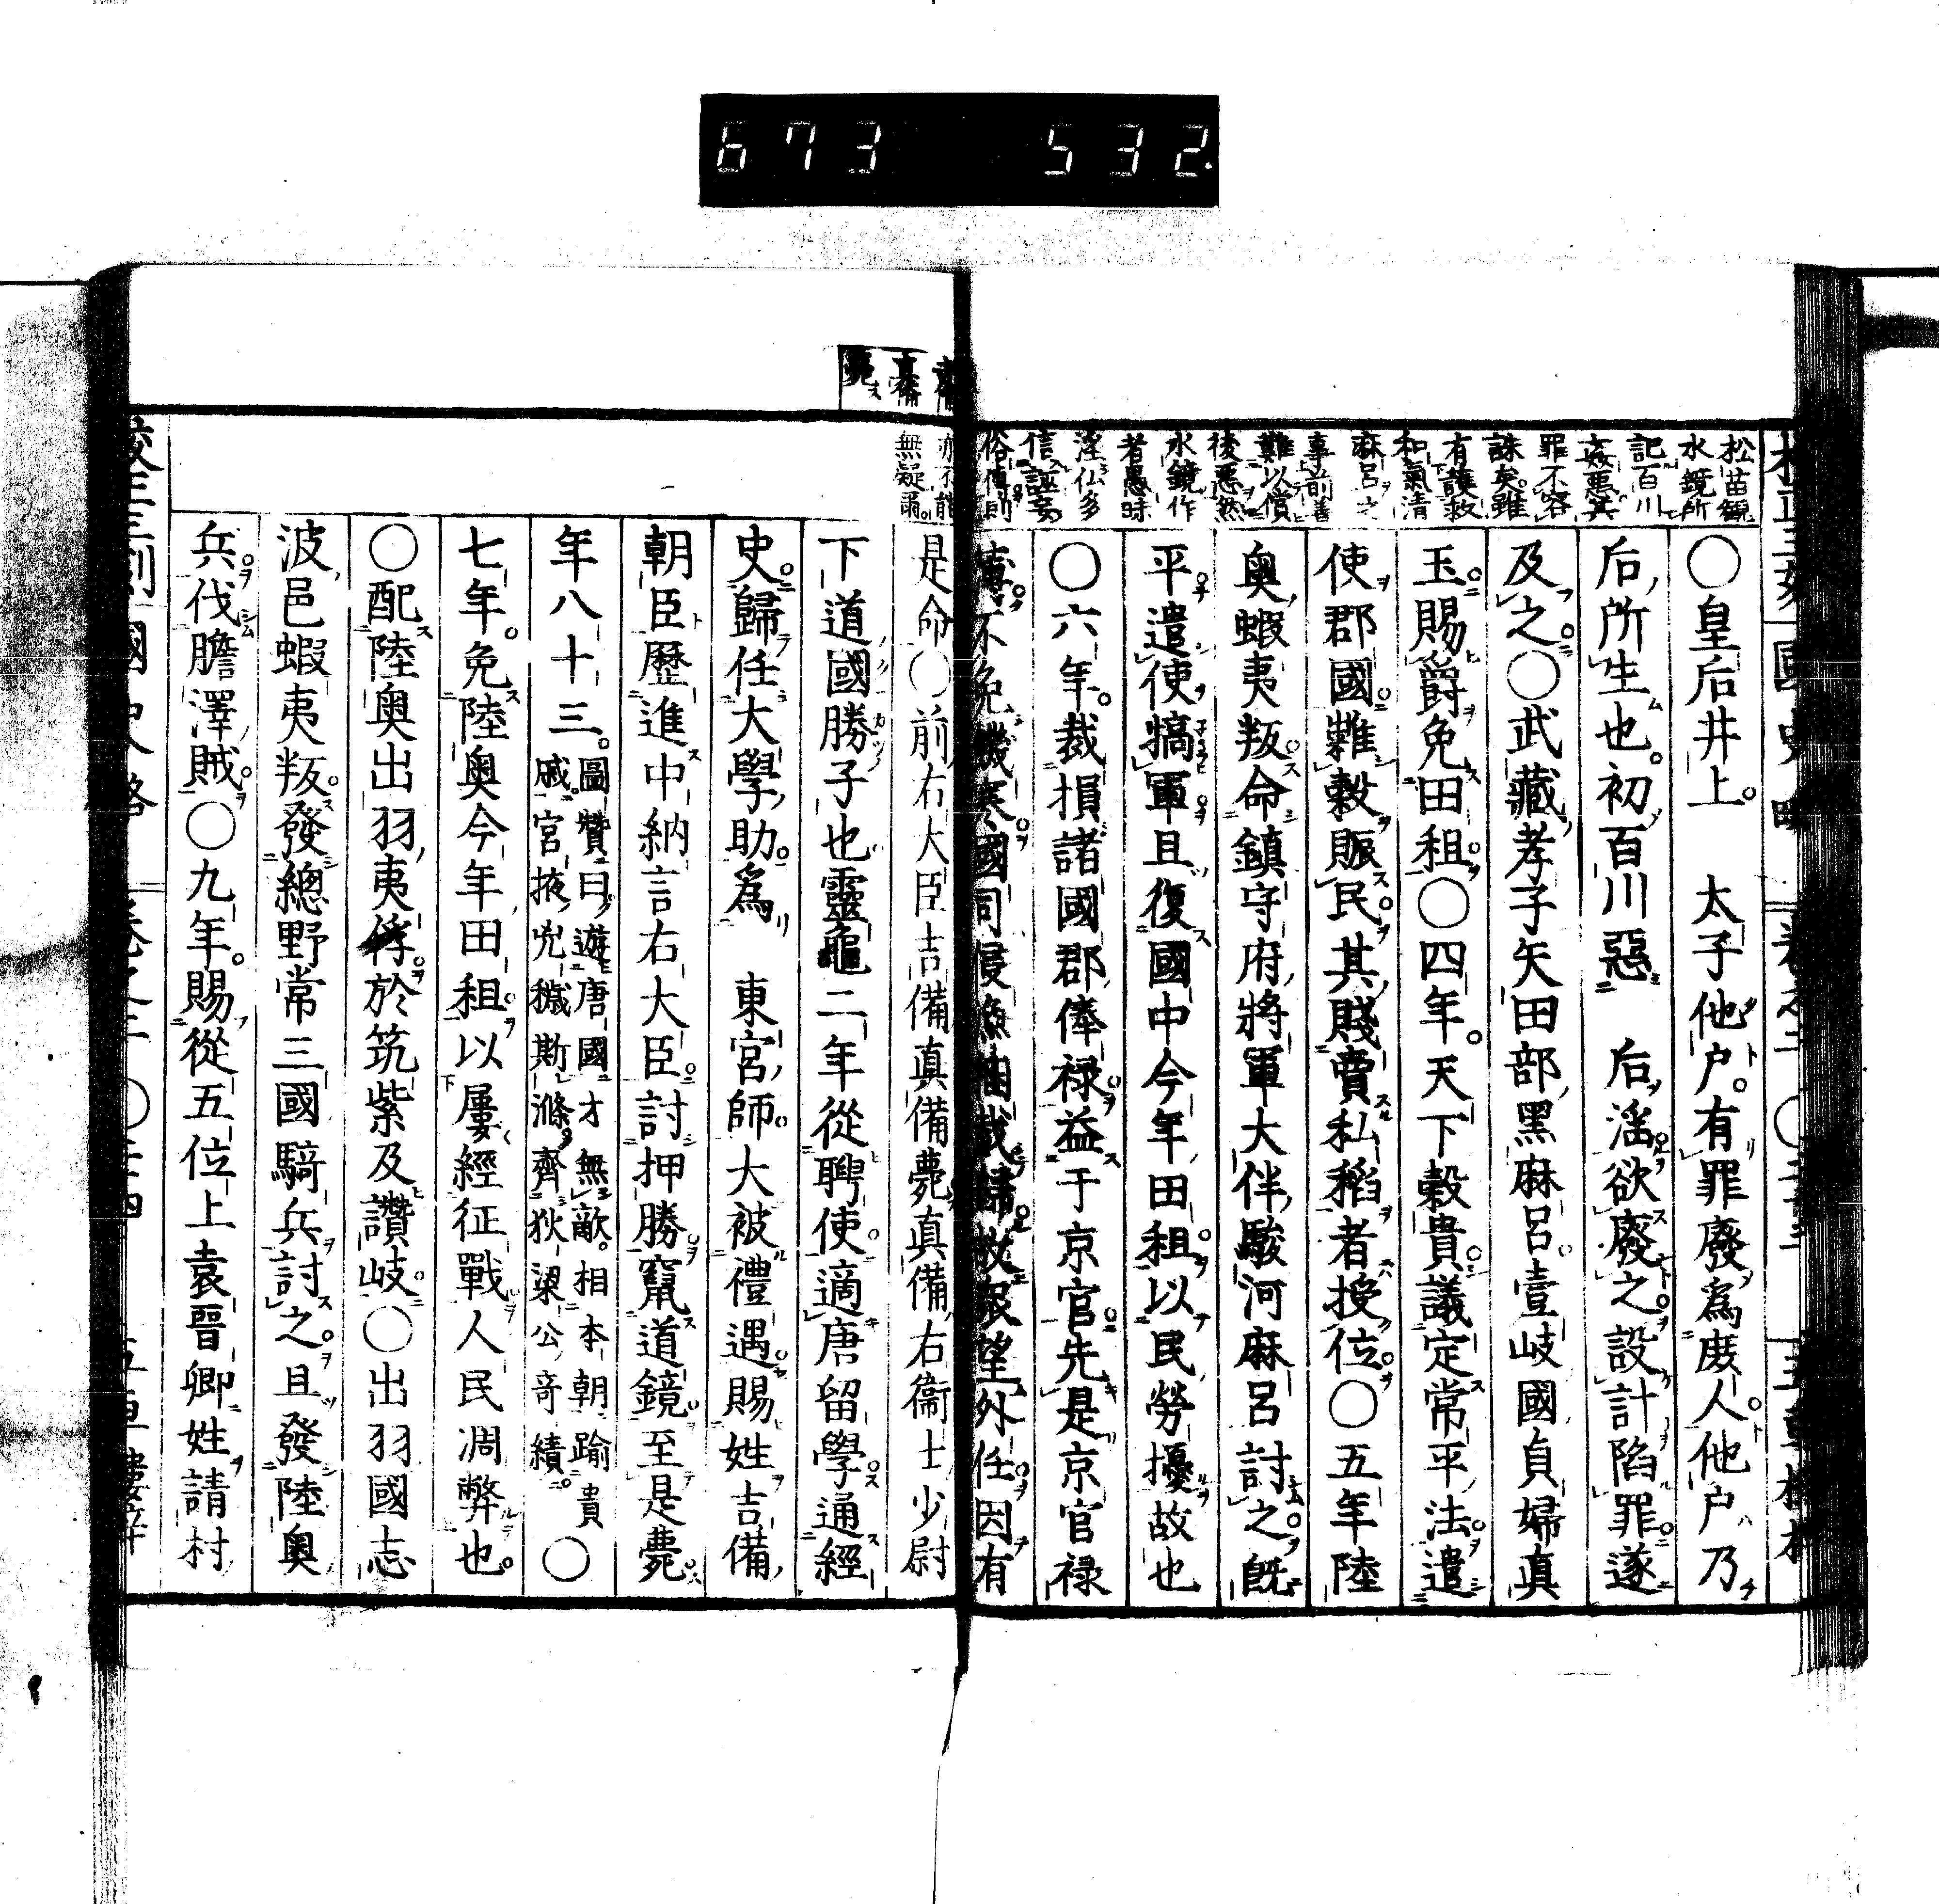 673 532
松苗観
水鏡所
記百川
姦悪其
罪不容
誅矣雖
有護救
和氣清
麻呂之
事前善
難以償
後悪然
水鏡作
者愚昧
淫仏多
信誣妄
俗傳則
〇皇后井上。 太子他戸。有罪廢爲庶人。他戸乃
后所生也。初百川惡 后淫欲廢之。設計陷罪遂
及之〇武藏孝子矢田部黑麻呂壹岐國貞婦真
玉賜爵免田租〇四年。天下穀貴議定常平法遣
使郡國糶穀賑民其賤賣私稻者授位〇五年陸
奥蝦夷叛命鎮守府將軍大伴駿河麻呂討之既
平遣使犒軍且復國中今年田租以民勞擾故也
〇六年。裁損諸國郡俸禄益于京官先是京官禄
薄不免飢寒國司侵漁相裁歸故衆望外任因有
亦不能
無疑爾。
真備
薨ス
是命〇前右大臣吉備真備薨真備右衞士少尉
下道國勝子也靈龜二年從聘使適唐留學通經
史歸任大學助爲 東宮師大被禮遇賜姓吉備
朝臣歷進中納言右大臣討押勝竄道鏡至是薨
年八十三。圖贊曰遊唐國才無敵。相本朝踰貴戚宮掖兇穢斯滌齊狄梁公奇績。〇
七年。免陸奥今年田租以屢經征戰人民凋弊也。
〇配陸奥出羽夷俘於筑紫及讚岐〇出羽國志
波邑蝦夷叛發總野常三國騎兵討之且發陸奥
兵伐膽澤賊〇九年。賜從五位上袁晉卿姓請村